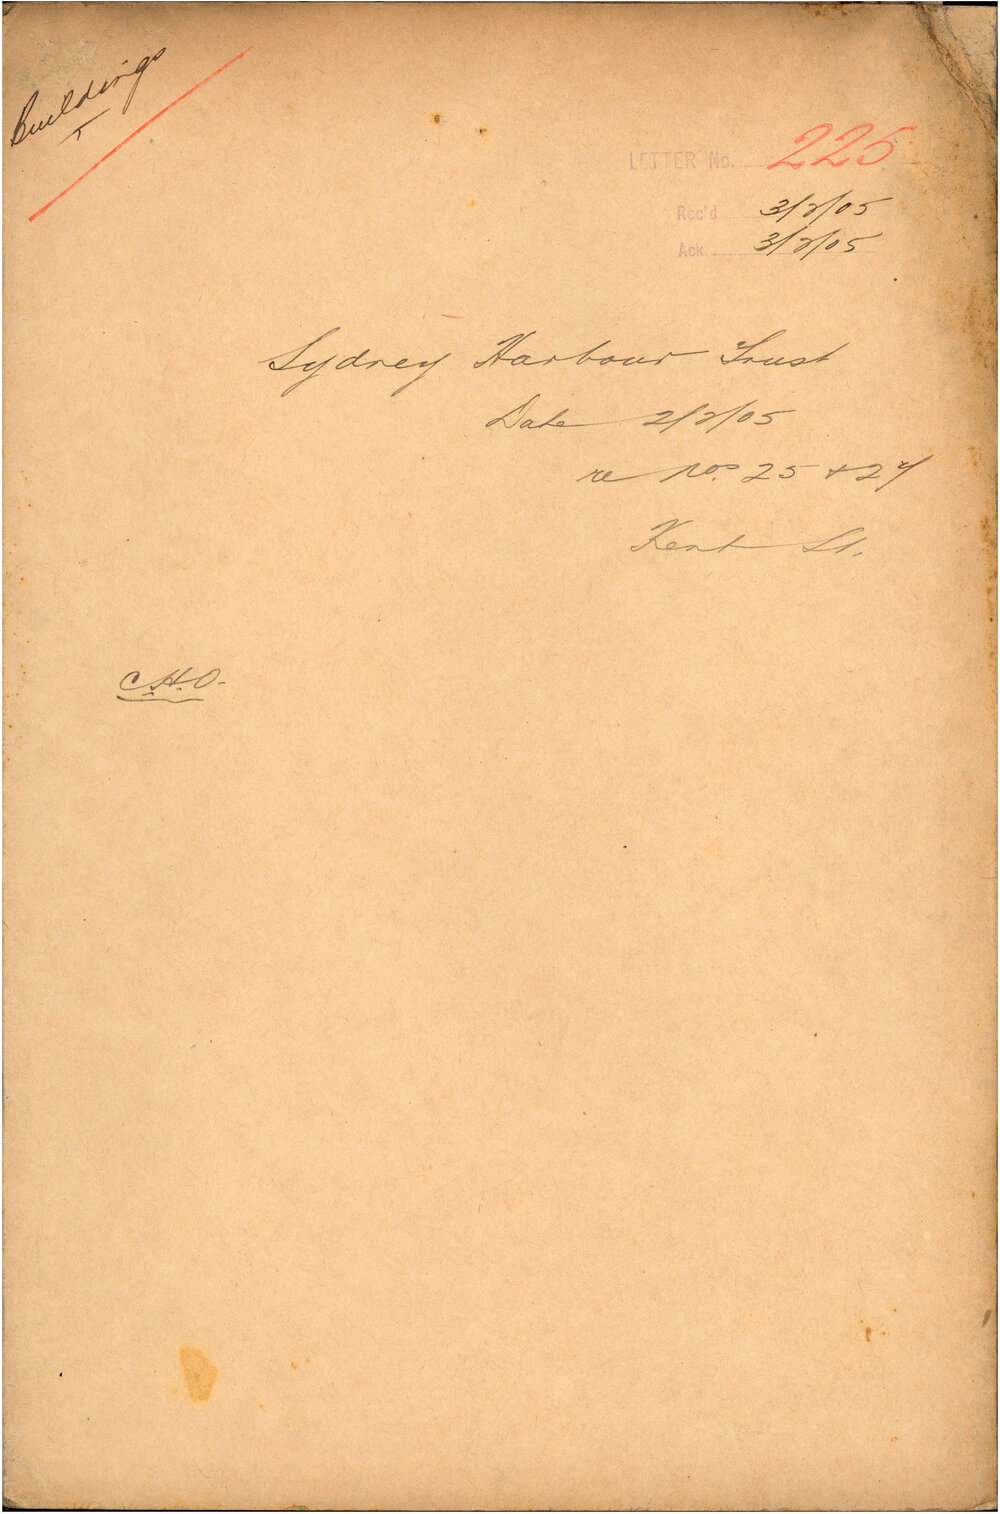 Buildings
LETTER No. 225
Rec'd 3/2/05
Ack. 3/2/05
Sydney Harbour Trust
Date 2/2/05
re Nos. 25 & 27
Kent St.
C.H.O.